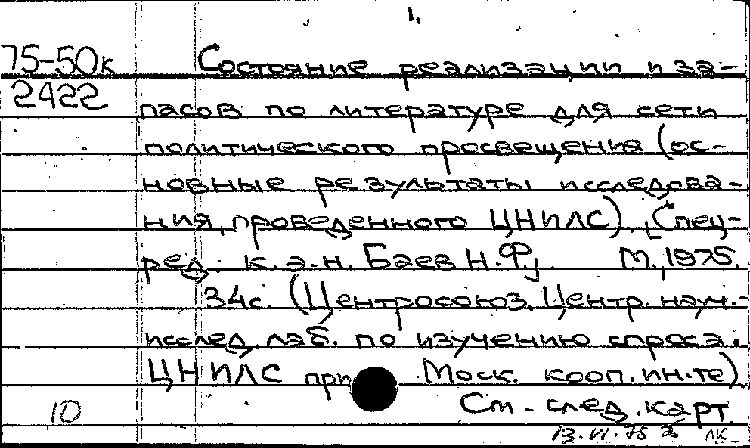 1.
75-50к Состояние реализации и за-
2422 пасов по литературе для сети
политического просвещения (ос-
новные результаты исследова-
ния, проведенного ЦНИЛС). [Спец-
ред. к.э.н. Баев Н.Ф.] М., 1975.
34с. (Центросоюз. Центр. науч.-
исслед. лаб. по изучению спроса.
ЦНИЛС при Моск. кооп. ин-те)
10 См. след. карт
13.VI.75 лк